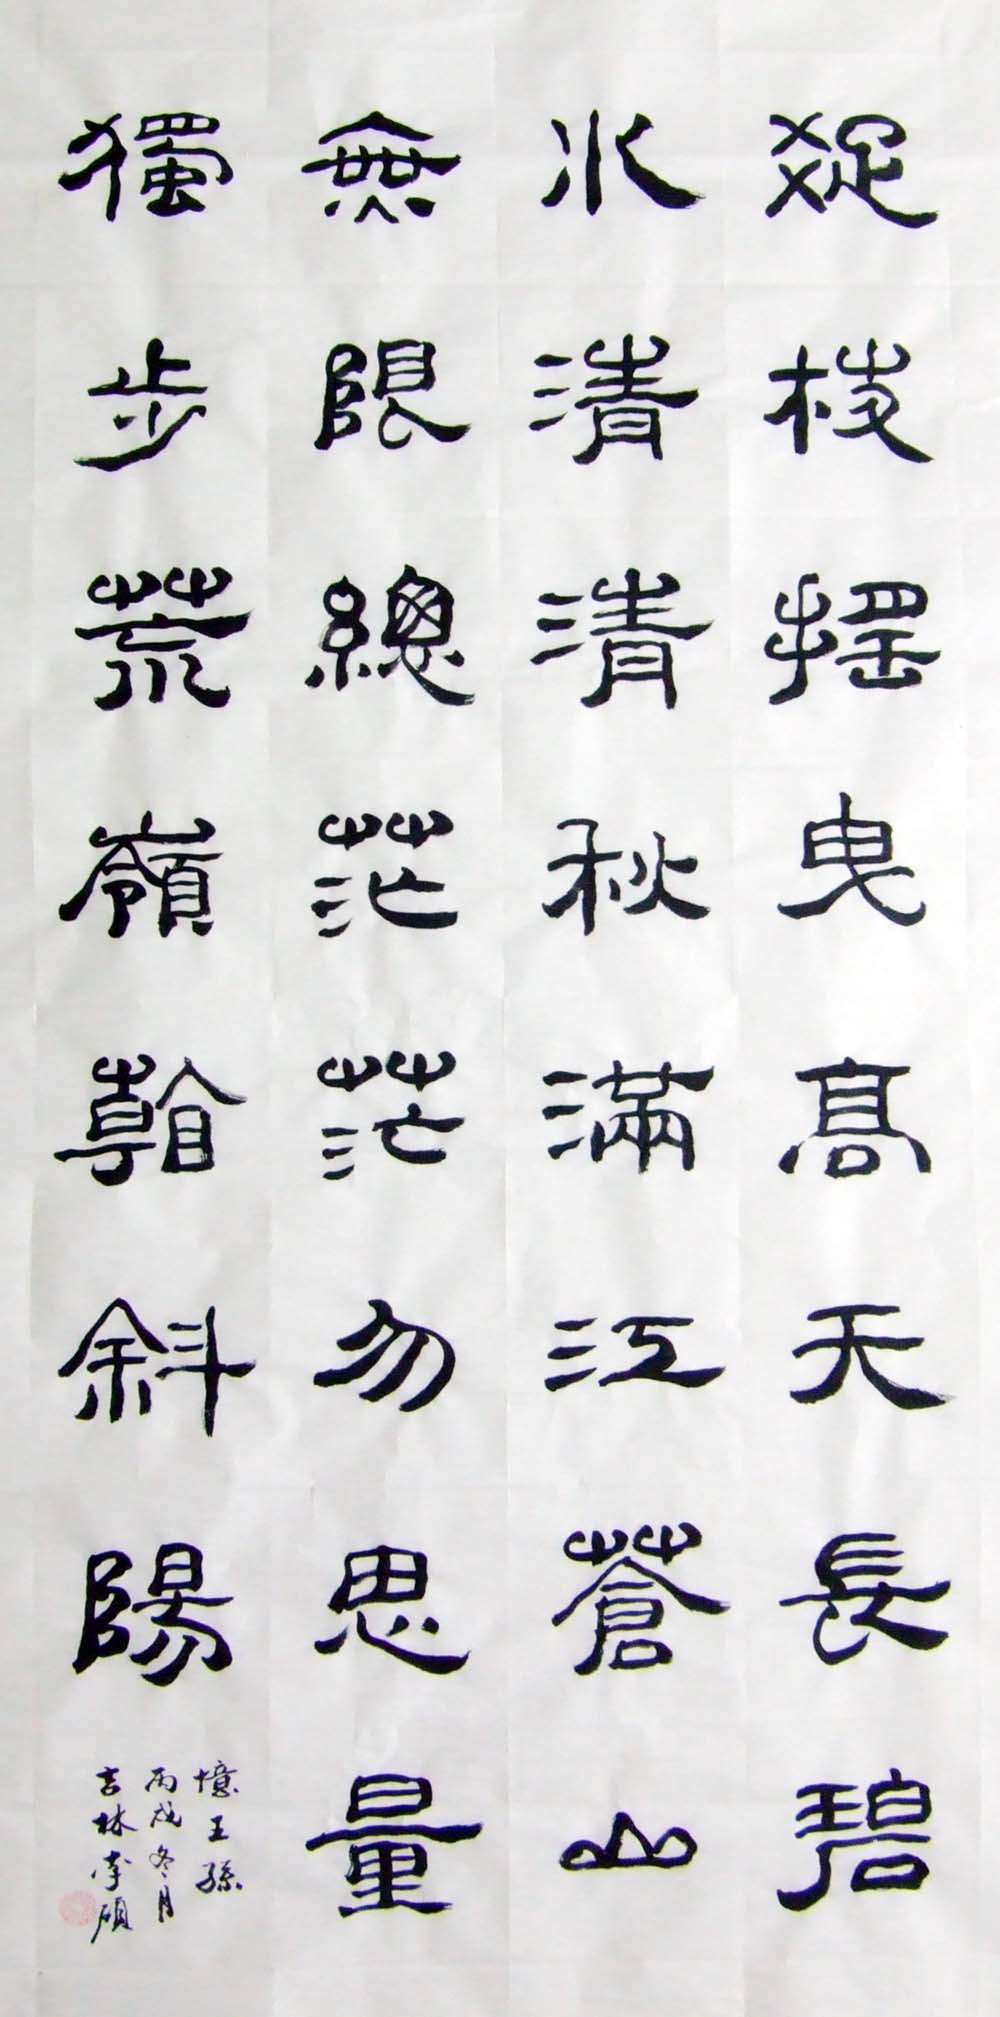 疏枝揺曳高天長碧
水清清秋滿江蒼山
無限總茫茫勿思量
獨步荒嶺朝斜陽
憶王孫
丙戌冬月
吉林李碩